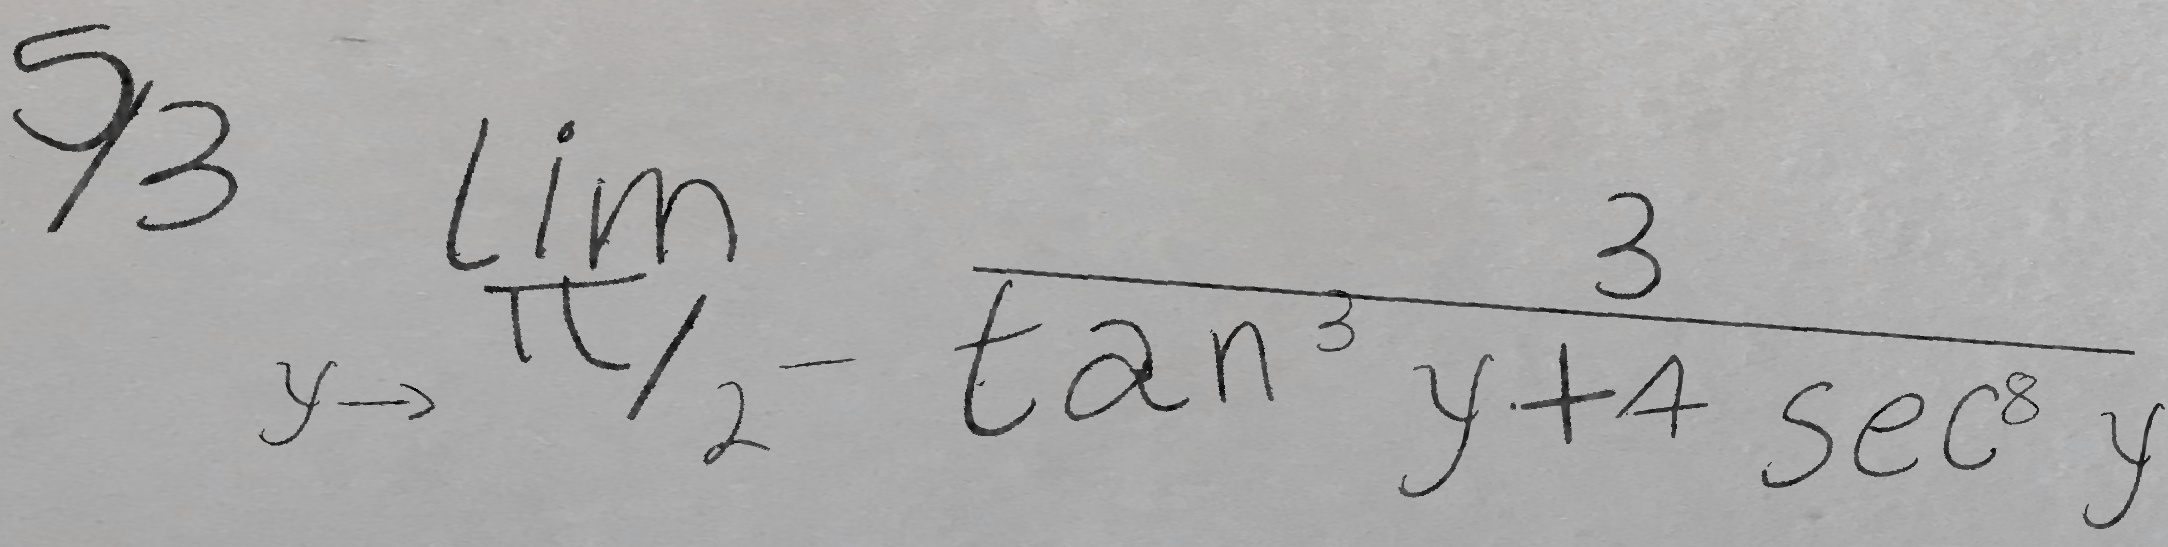 5/3 lim y→π/2⁻ 3/(tan³ y + 4 sec⁸ y)